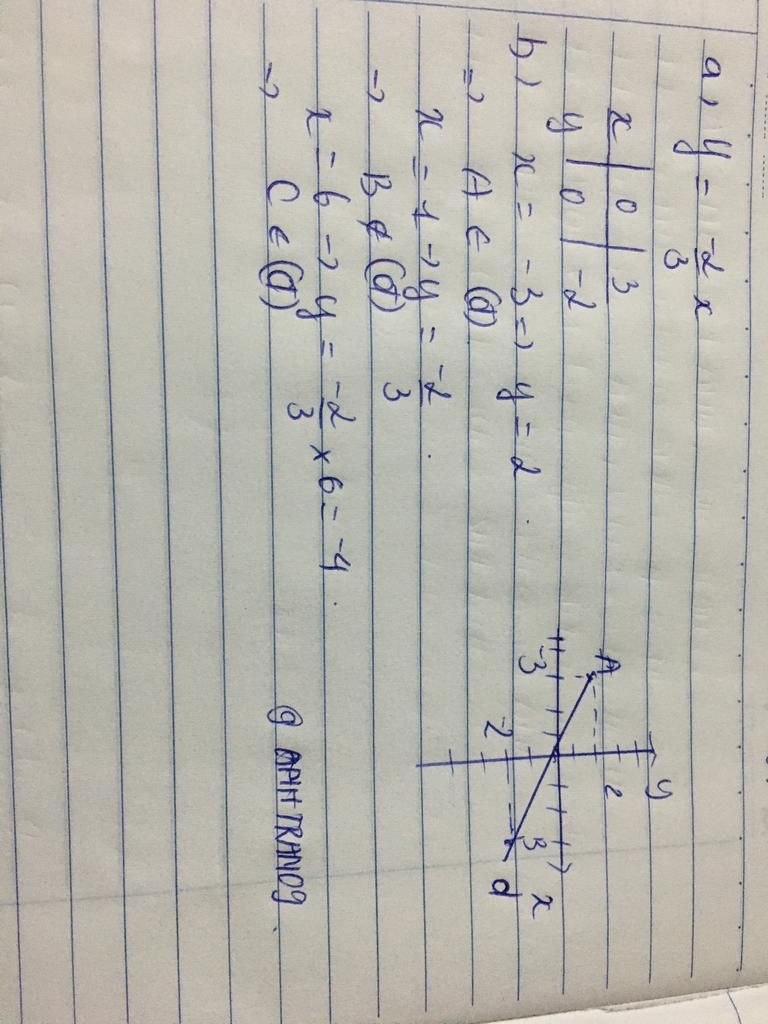 a, y = -2/3 x
x | 0 | 3
y | 0 | -2
b, x = -3 => y = 2.
=> A ∈ (d)
x = 1 -> y = -2/3.
-> B ∉ (d)
x = 6 -> y = -2/3 × 6 = -4.
-> C ∈ (d)
y
A
2
-3
3
x
-2
d
@ APHTRAN09.